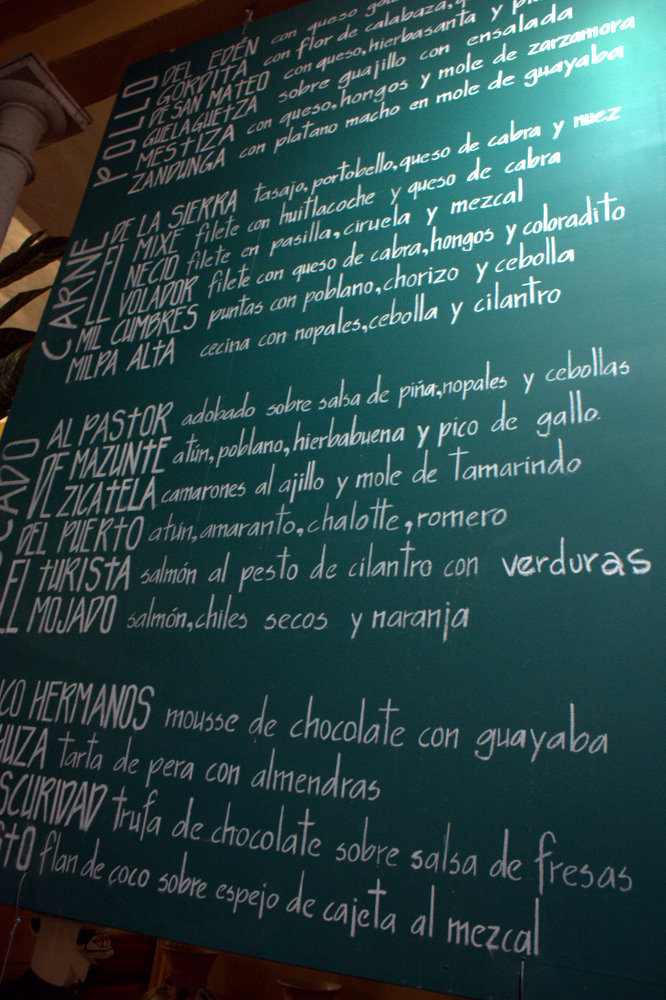 POLLO
DEL EDÉN con queso
GORDITA con flor de calabaza,
DE SAN MATEO con queso, hierbasanta y
GUELAGUETZA sobre guajillo con ensalada
MESTIZA con queso, hongos y mole de zarzamora
ZANDUNGA con platano macho en mole de guayaba
CARNE
DE LA SIERRA tasajo, portobello, queso de cabra y nuez
EL MIXE filete con huitlacoche y queso de cabra
EL NECIO filete en pasilla, ciruela y mezcal
EL VOLADOR filete con queso de cabra, hongos y coloradito
MIL CUMBRES puntas con poblano, chorizo y cebolla
MILPA ALTA cecina con nopales, cebolla y cilantro
CADO
AL PASTOR adobado sobre salsa de piña, nopales y cebollas
DE MAZUNTE atún, poblano, hierbabuena y pico de gallo.
DE ZICATELA camarones al ajillo y mole de tamarindo
DEL PUERTO atún, amaranto, chalotte, romero
EL TURISTA salmón al pesto de cilantro con verduras
EL MOJADO salmón, chiles secos y naranja
CO HERMANOS mousse de chocolate con guayaba
HUZA tarta de pera con almendras
SCURIDAD trufa de chocolate sobre salsa de fresas
STO flan de coco sobre espejo de cajeta al mezcal